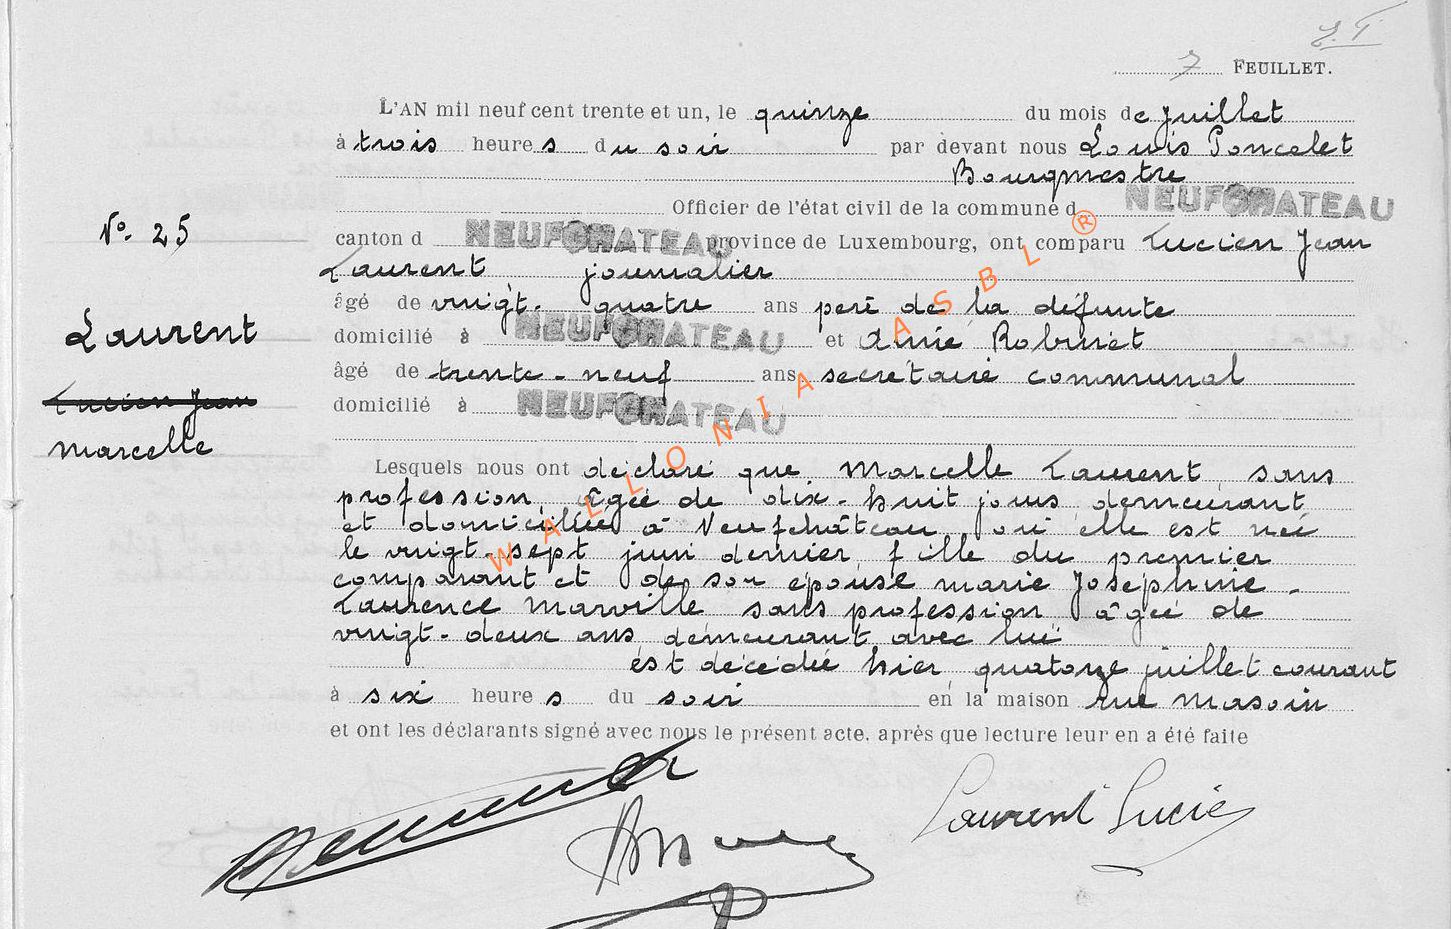 7 FEUILLET.
L'AN mil neuf cent trente et un, le quinze du mois de juillet
à trois heures du soir par devant nous Louis Poncelet
Bourgmestre
Officier de l'état civil de la commune d NEUFCHATEAU
canton d NEUFCHATEAU province de Luxembourg, ont comparu Lucien Jean
Laurent journalier
âgé de vingt-quatre ans père de la défunte
domicilié à NEUFCHATEAU et Aimé Robinet
âgé de trente-neuf ans secrétaire communal
domicilié à NEUFCHATEAU
No. 25
Laurent
Lucien Jean
Marcelle
Lesquels nous ont déclaré que Marcelle Laurent sans
profession, âgée de dix-huit jours demeurant
et domiciliée à Neufchâteau, où elle est née
le vingt-sept juin dernier, fille du premier
comparant et de son épouse Marie Josephine-
Laurence Marville sans profession âgée de
vingt-deux ans demeurant avec lui
est décédée hier, quatorze juillet courant
à six heures du soir en la maison rue Masoin
et ont les déclarants signé avec nous le présent acte, après que lecture leur en a été faite
Laurent Lucien
WALLONIA ASBL ®